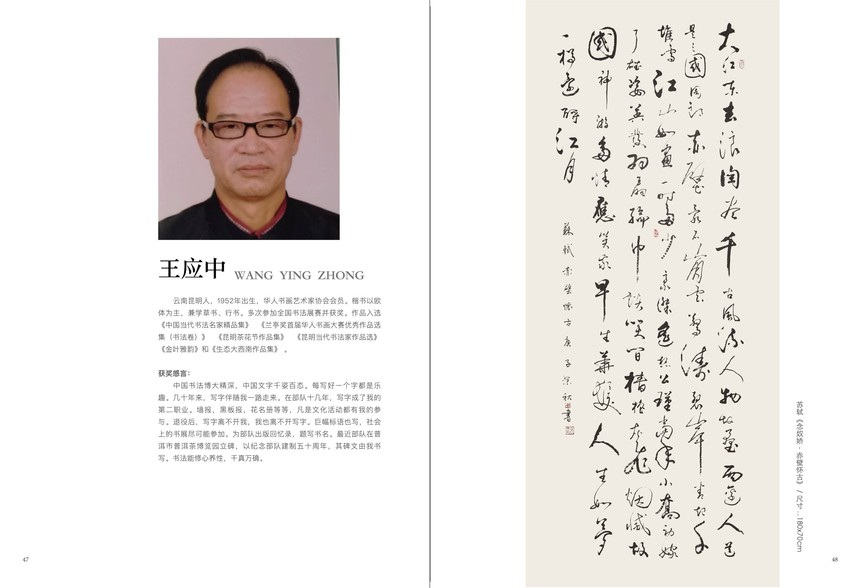 王应中 WANG YING ZHONG
云南昆明人，1952年出生，华人书画艺术家协会会员。楷书以欧
体为主，兼学草书、行书。多次参加全国书法展赛并获奖。作品入选
《中国当代书法名家精品集》 《兰亭奖首届华人书画大赛优秀作品选
集（书法卷）》 《昆明茶花节作品集》 《昆明当代书法家作品选》
《金叶雅韵》和《生态大西南作品集》 。
获奖感言：
中国书法博大精深，中国文字千姿百态。每写好一个字都是乐
趣。几十年来，写字伴随我一路走来。在部队十几年，写字成了我的
第二职业。墙报，黑板报，花名册等等，凡是文化活动都有我的参
与。退役后，写字离不开我，我也离不开写字。巨幅标语也写，社会
上的书展尽可能参加。为部队出版回忆录，题写书名。最近部队在普
洱市普洱茶博览园立碑，以纪念部队建制五十周年，其碑文由我书
写。书法能修心养性，千真万确。
47
大江东去浪淘尽千古风流人物故垒西边人道
是三國周郎赤壁
江山如畫一时多少豪傑遥想公瑾當年小喬初嫁
了雄姿英發羽扇綸巾談笑间樯橹灰飛烟滅故
國神游多情應笑我早生華髮人生如夢
一樽還酹江月
蘇軾赤壁懷古庚子深秋 書
苏轼《念奴娇·赤壁怀古》 / 尺寸：180x70cm
48